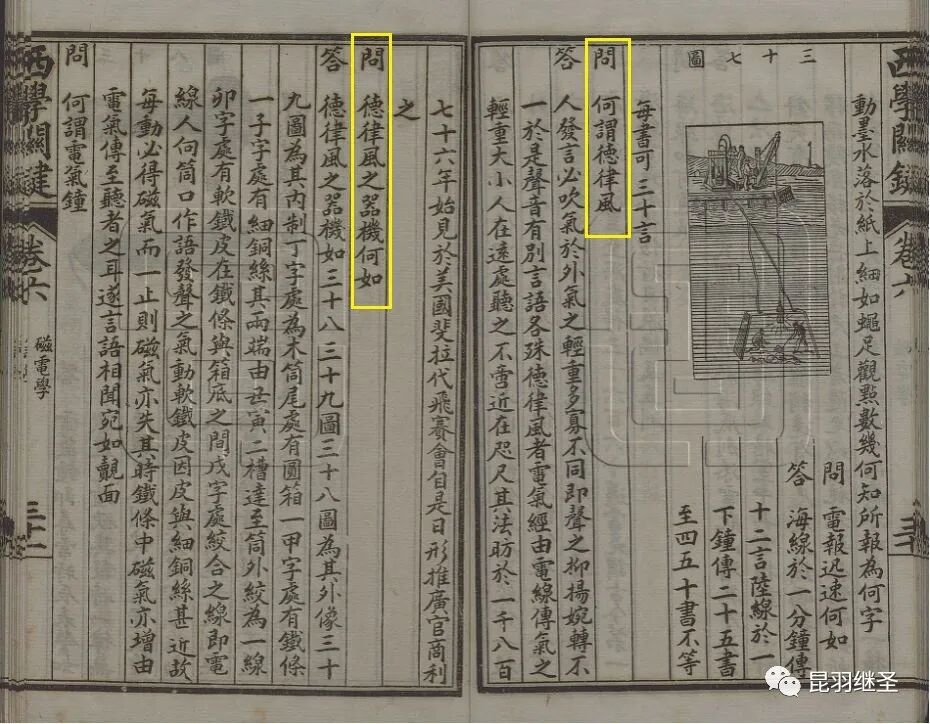 動墨水落於紙上細如蠅足觀點數幾何知所報為何字
問 電報迅速何如
答 海線於一分鐘傳
十二言陸線於一
下鐘傳二十五書
至四五十書不等
三十七圖
每書可三十言
問 何謂德律風
答 人發言必吹氣於外氣之輕重多寡不同即聲之抑揚婉轉不
一於是聲音有別言語各殊德律風者電氣經由電線傳氣之
輕重大小人在遠處聽之不啻近在咫尺其法昉於一千八百
七十六年始見於美國斐拉代飛賽會自是日形推廣官商利
之
問 德律風之器機何如
答 德律風之器機如三十八三十九圖三十八圖為其外像三十
九圖為其內制丁字處為木筒尾處有圓箱一甲字處有鐵條
一子字處有細銅絲其兩端由丑寅二槽達至筒外絞為一線
卯字處有軟鐵皮在鐵條與箱底之間戊字處絞合之線即電
線人向筒口作語發聲之氣動軟鐵皮因皮與細銅絲甚近故
每動必得磁氣而一止則磁氣亦失其時鐵條中磁氣亦增由
電氣傳至聽者之耳遂言語相聞宛如覿面
問 何謂電氣鐘
西學關鍵
卷六
磁電學
三十一
西學關鍵
卷六
三十
昆羽继圣